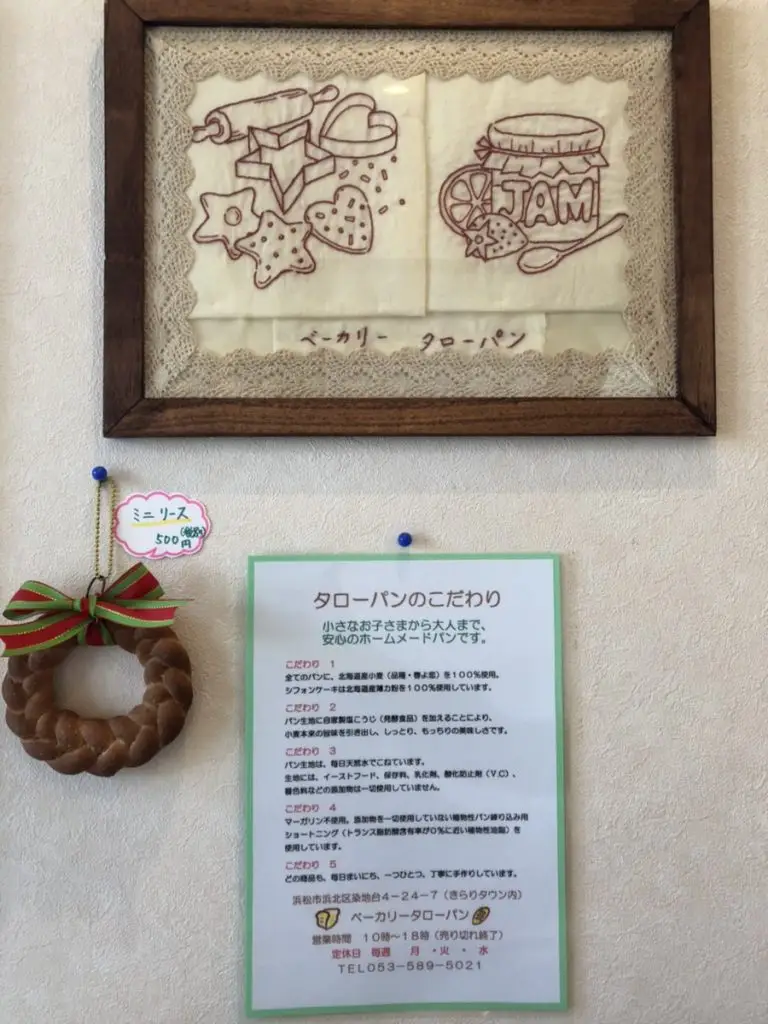 JAM
ベーカリー タローパン
ミニリース
500円(税別)
タローパンのこだわり
小さなお子さまから大人まで、
安心のホームメードパンです。
こだわり 1
全てのパンに、北海道産小麦（品種・春よ恋）を100％使用。
シフォンケーキは北海道産薄力粉を100％使用しています。
こだわり 2
パン生地に自家製塩こうじ（発酵食品）を加えることにより、
小麦本来の旨味を引き出し、しっとり、もっちりの美味しさです。
こだわり 3
パン生地は、毎日天然水でこねています。
生地には、イーストフード、保存料、乳化剤、酸化防止剤（V.C）、
着色料などの添加物は一切使用していません。
こだわり 4
マーガリン不使用。添加物を一切使用していない植物性パン練り込み用
ショートニング（トランス脂肪酸含有率が0％に近い植物性油脂）を
使用しています。
こだわり 5
どの商品も、毎日まいにち、一つひとつ、丁寧に手作りしています。
浜松市浜北区染地台4－24－7（きらりタウン内）
ベーカリータローパン
営業時間 10時～18時（売り切れ終了）
定休日 毎週 月・火・水
TEL053－589－5021